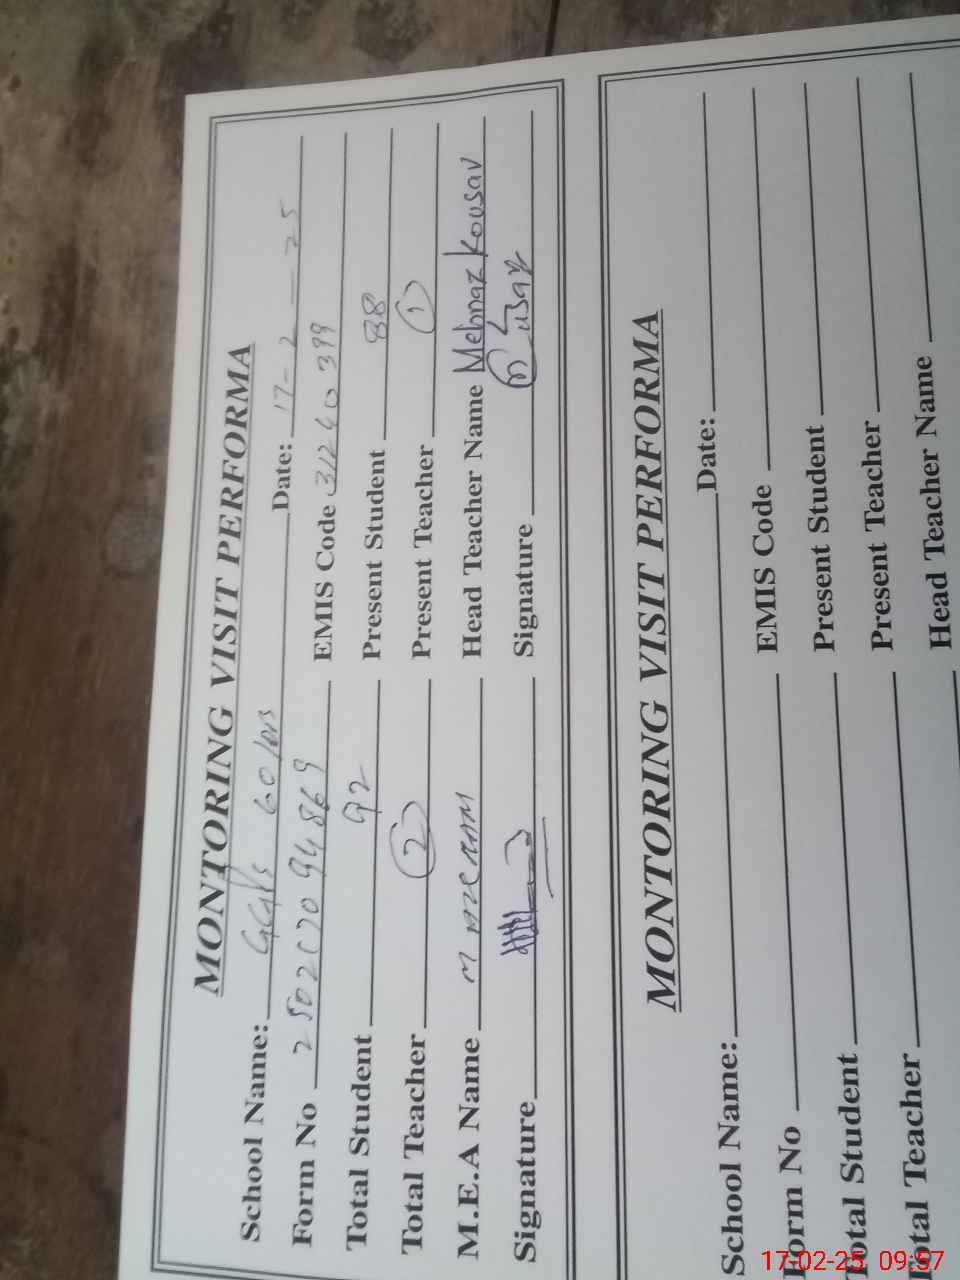 MONTORING VISIT PERFORMA
School Name: GGPS 60/ Date: 17-2-25
Form No EMIS Code 31240399
Total Student 92 Present Student 88
Total Teacher 2 Present Teacher 1
M.E.A Name M AKRAM Head Teacher Name Mehnaz Kousar
Signature Signature
MONTORING VISIT PERFORMA
School Name: Date:
Form No EMIS Code
Total Student Present Student
Total Teacher Present Teacher
Head Teacher Name
17-02-25 09:57